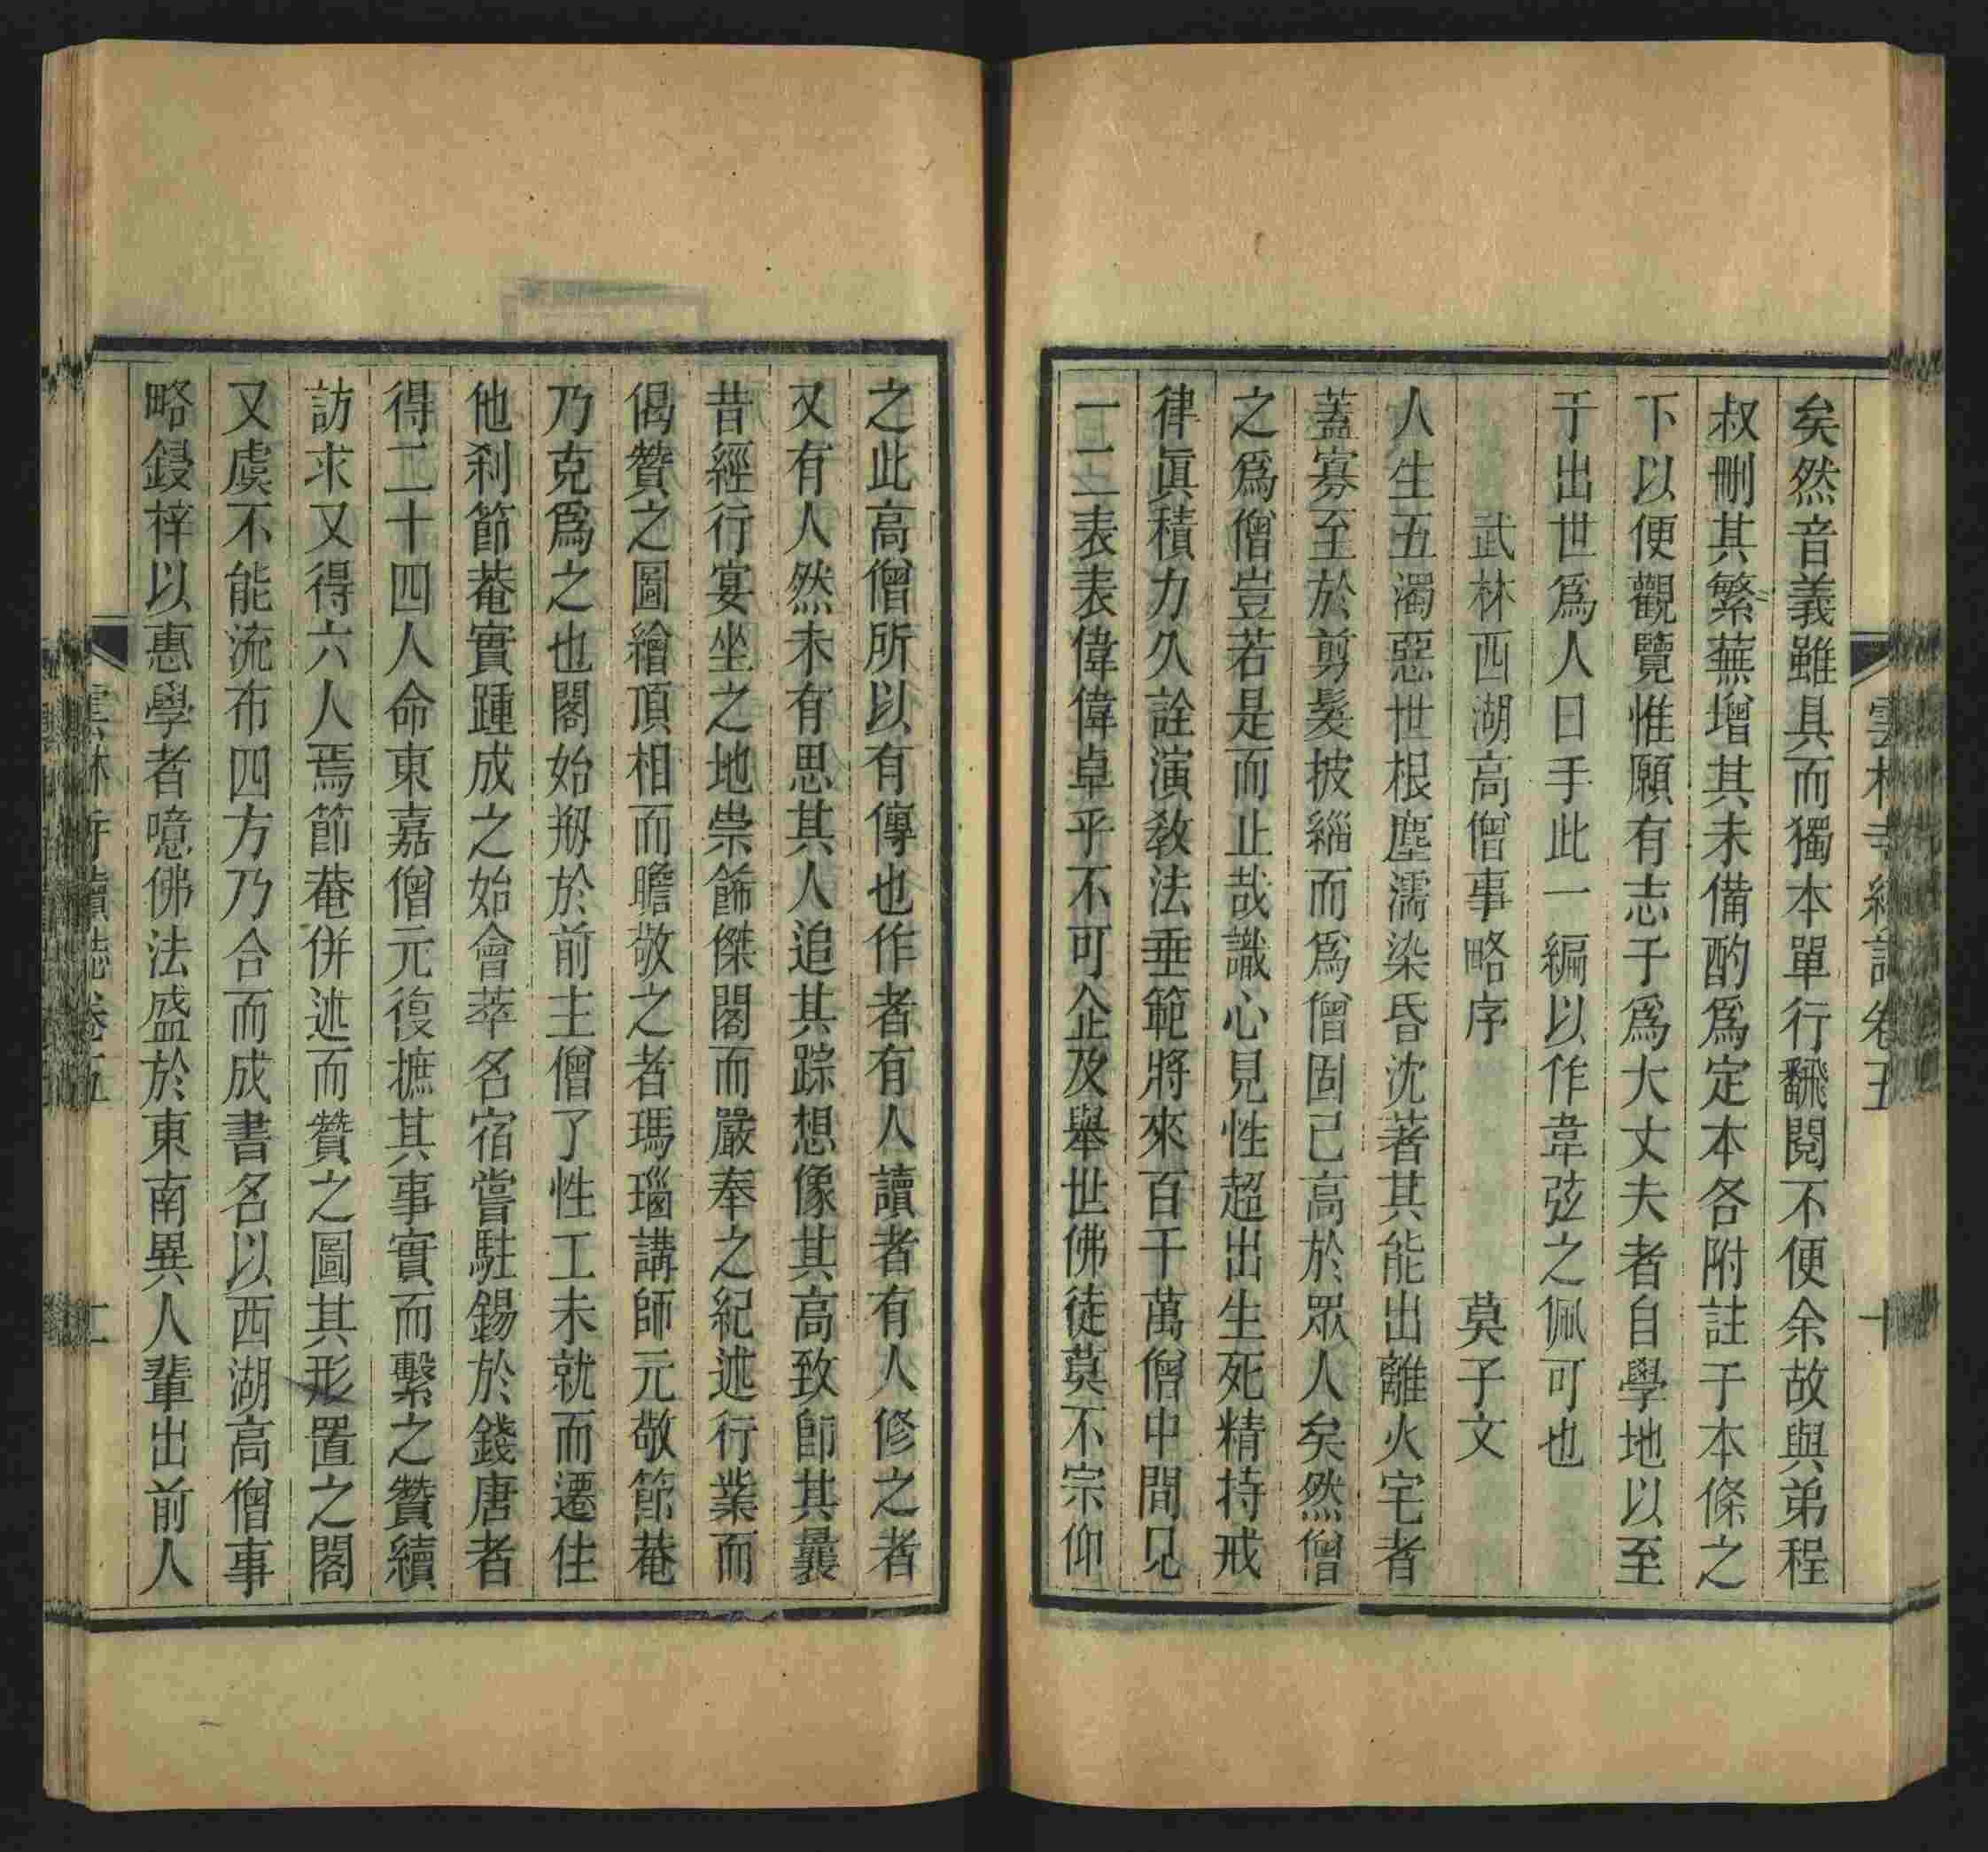 雲林寺續誌卷五
十
矣然音義雖具而獨本單行翻閱不便余故與弟程
叔刪其繁蕪增其未備酌爲定本各附註于本條之
下以便觀覽惟願有志于爲大丈夫者自學地以至
于出世爲人日手此一編以作韋弦之佩可也
武林西湖高僧事略序 莫子文
人生五濁惡世根塵濡染昏沈著其能出離火宅者
蓋寡至於剪髮披緇而爲僧固已高於眾人矣然僧
之爲僧豈若是而止哉識心見性超出生死精持戒
律眞積力久詮演教法垂範將來百千萬僧中間見
一二表表偉偉卓乎不可企及舉世佛徒莫不宗仰
之此高僧所以有傳也作者有人讀者有人修之者
又有人然未有思其人追其踪想像其高致卽其曩
昔經行宴坐之地崇飾傑閣而嚴奉之紀述行業而
偈贊之圖繪頂相而瞻敬之者瑪瑙講師元敬節菴
乃克爲之也閣始剏於前主僧了性工未就而遷住
他刹節菴實踵成之始會萃名宿嘗駐錫於錢唐者
得二十四人命東嘉僧元復摭其事實而繫之贊續
訪求又得六人焉節菴併述而贊之圖其形置之閣
又虞不能流布四方乃合而成書名以西湖高僧事
略鋟梓以惠學者噫佛法盛於東南異人輩出前人
雲林寺續誌卷五